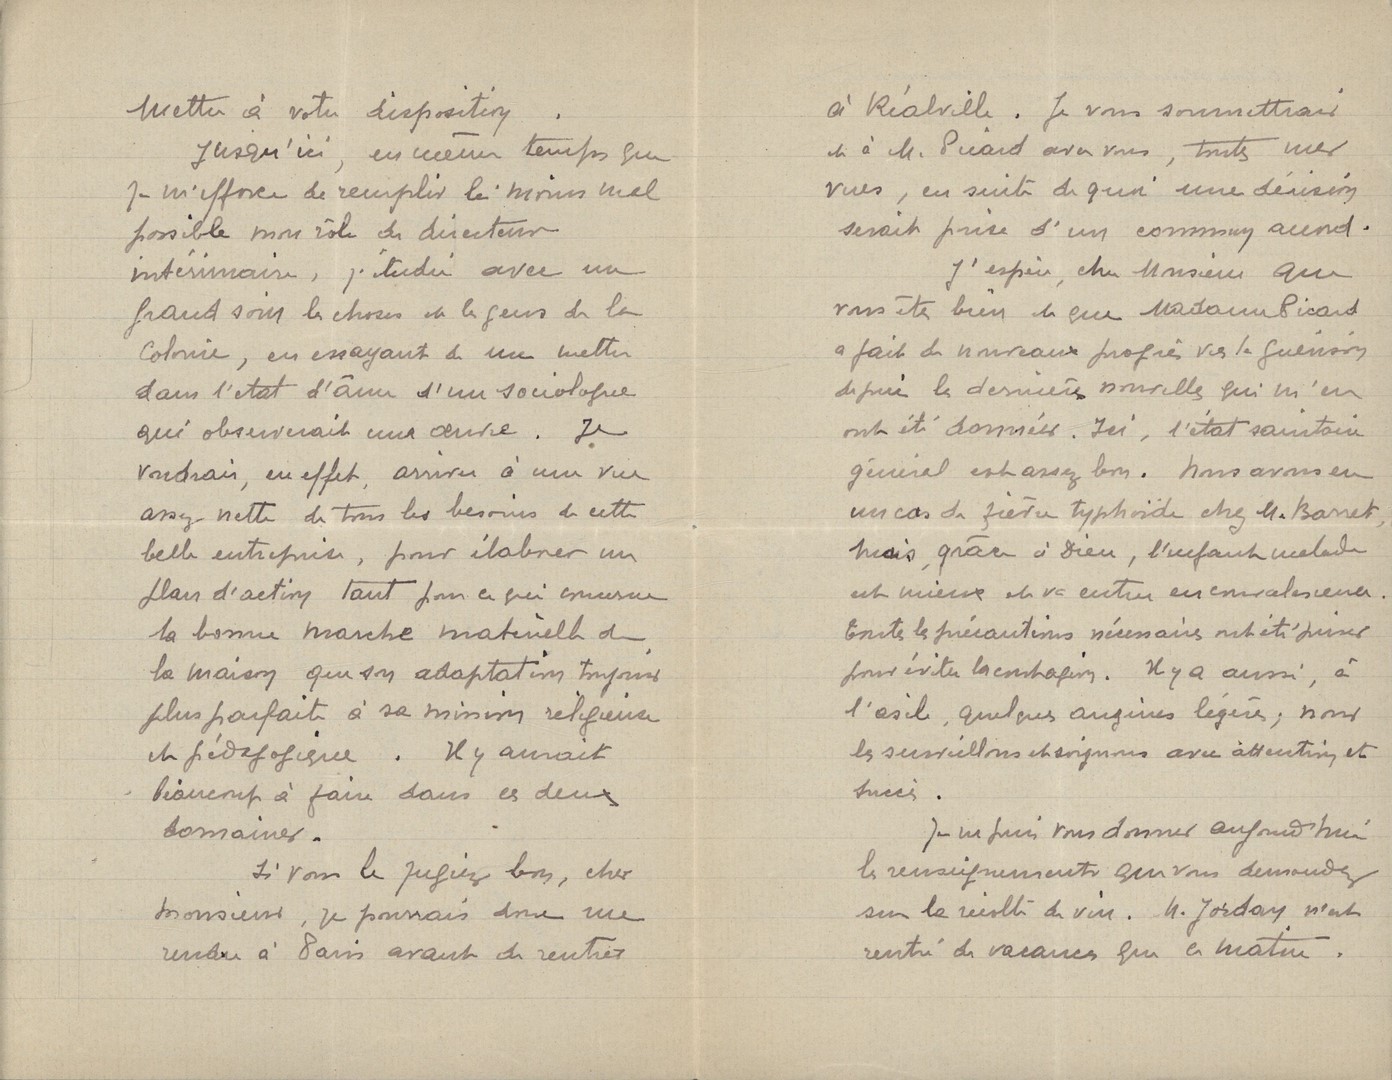 Mettre à votre disposition .
Jusqu'ici, en même temps que
je m'efforce de remplir le moins mal
possible mon rôle de directeur
intérimaire, j'étudie avec un
grand soin les choses et les gens de la
Colonie, en essayant de me mettre
dans l'état d'âme d'un sociologue
qui observerait une œuvre . Je
voudrais, en effet, arriver à une vue
assez nette de tous les besoins de cette
belle entreprise, pour élaborer un
plan d'action tant pour ce qui concerne
la bonne marche matérielle de
la maison que son adaptation toujours
plus parfaite à sa mission religieuse
et pédagogique . Il y aurait
beaucoup à faire dans ces deux
domaines.
Si vous le jugiez bon, cher
monsieur, je pourrais donc me
rendre à Paris avant de rentrer
à Réalville . Je vous soumettrais
et à M. Picard avec vous, toutes mes
vues, en suite de quoi une décision
serait prise d'un commun accord.
J'espère, cher Monsieur que
vous êtes bien et que Madame Picard
a fait de nouveaux progrès vers la guérison
depuis les dernières nouvelles qui m'en
ont été données. Ici, l'état sanitaire
général est assez bon. Nous avons eu
un cas de fièvre typhoïde chez M. Barret,
mais, grâce à Dieu, l'enfant malade
est mieux et va entrer en convalescence.
Toutes les précautions nécessaires ont été prises
pour éviter la contagion. Il y a aussi, à
l'asile, quelques angines légères; nous
les surveillons et soignons avec attention et
succès .
Je ne puis vous donner aujourd'hui
les renseignements que vous demandez
sur la récolte de vin. M. Jorday n'est
rentré de vacances que ce matin .